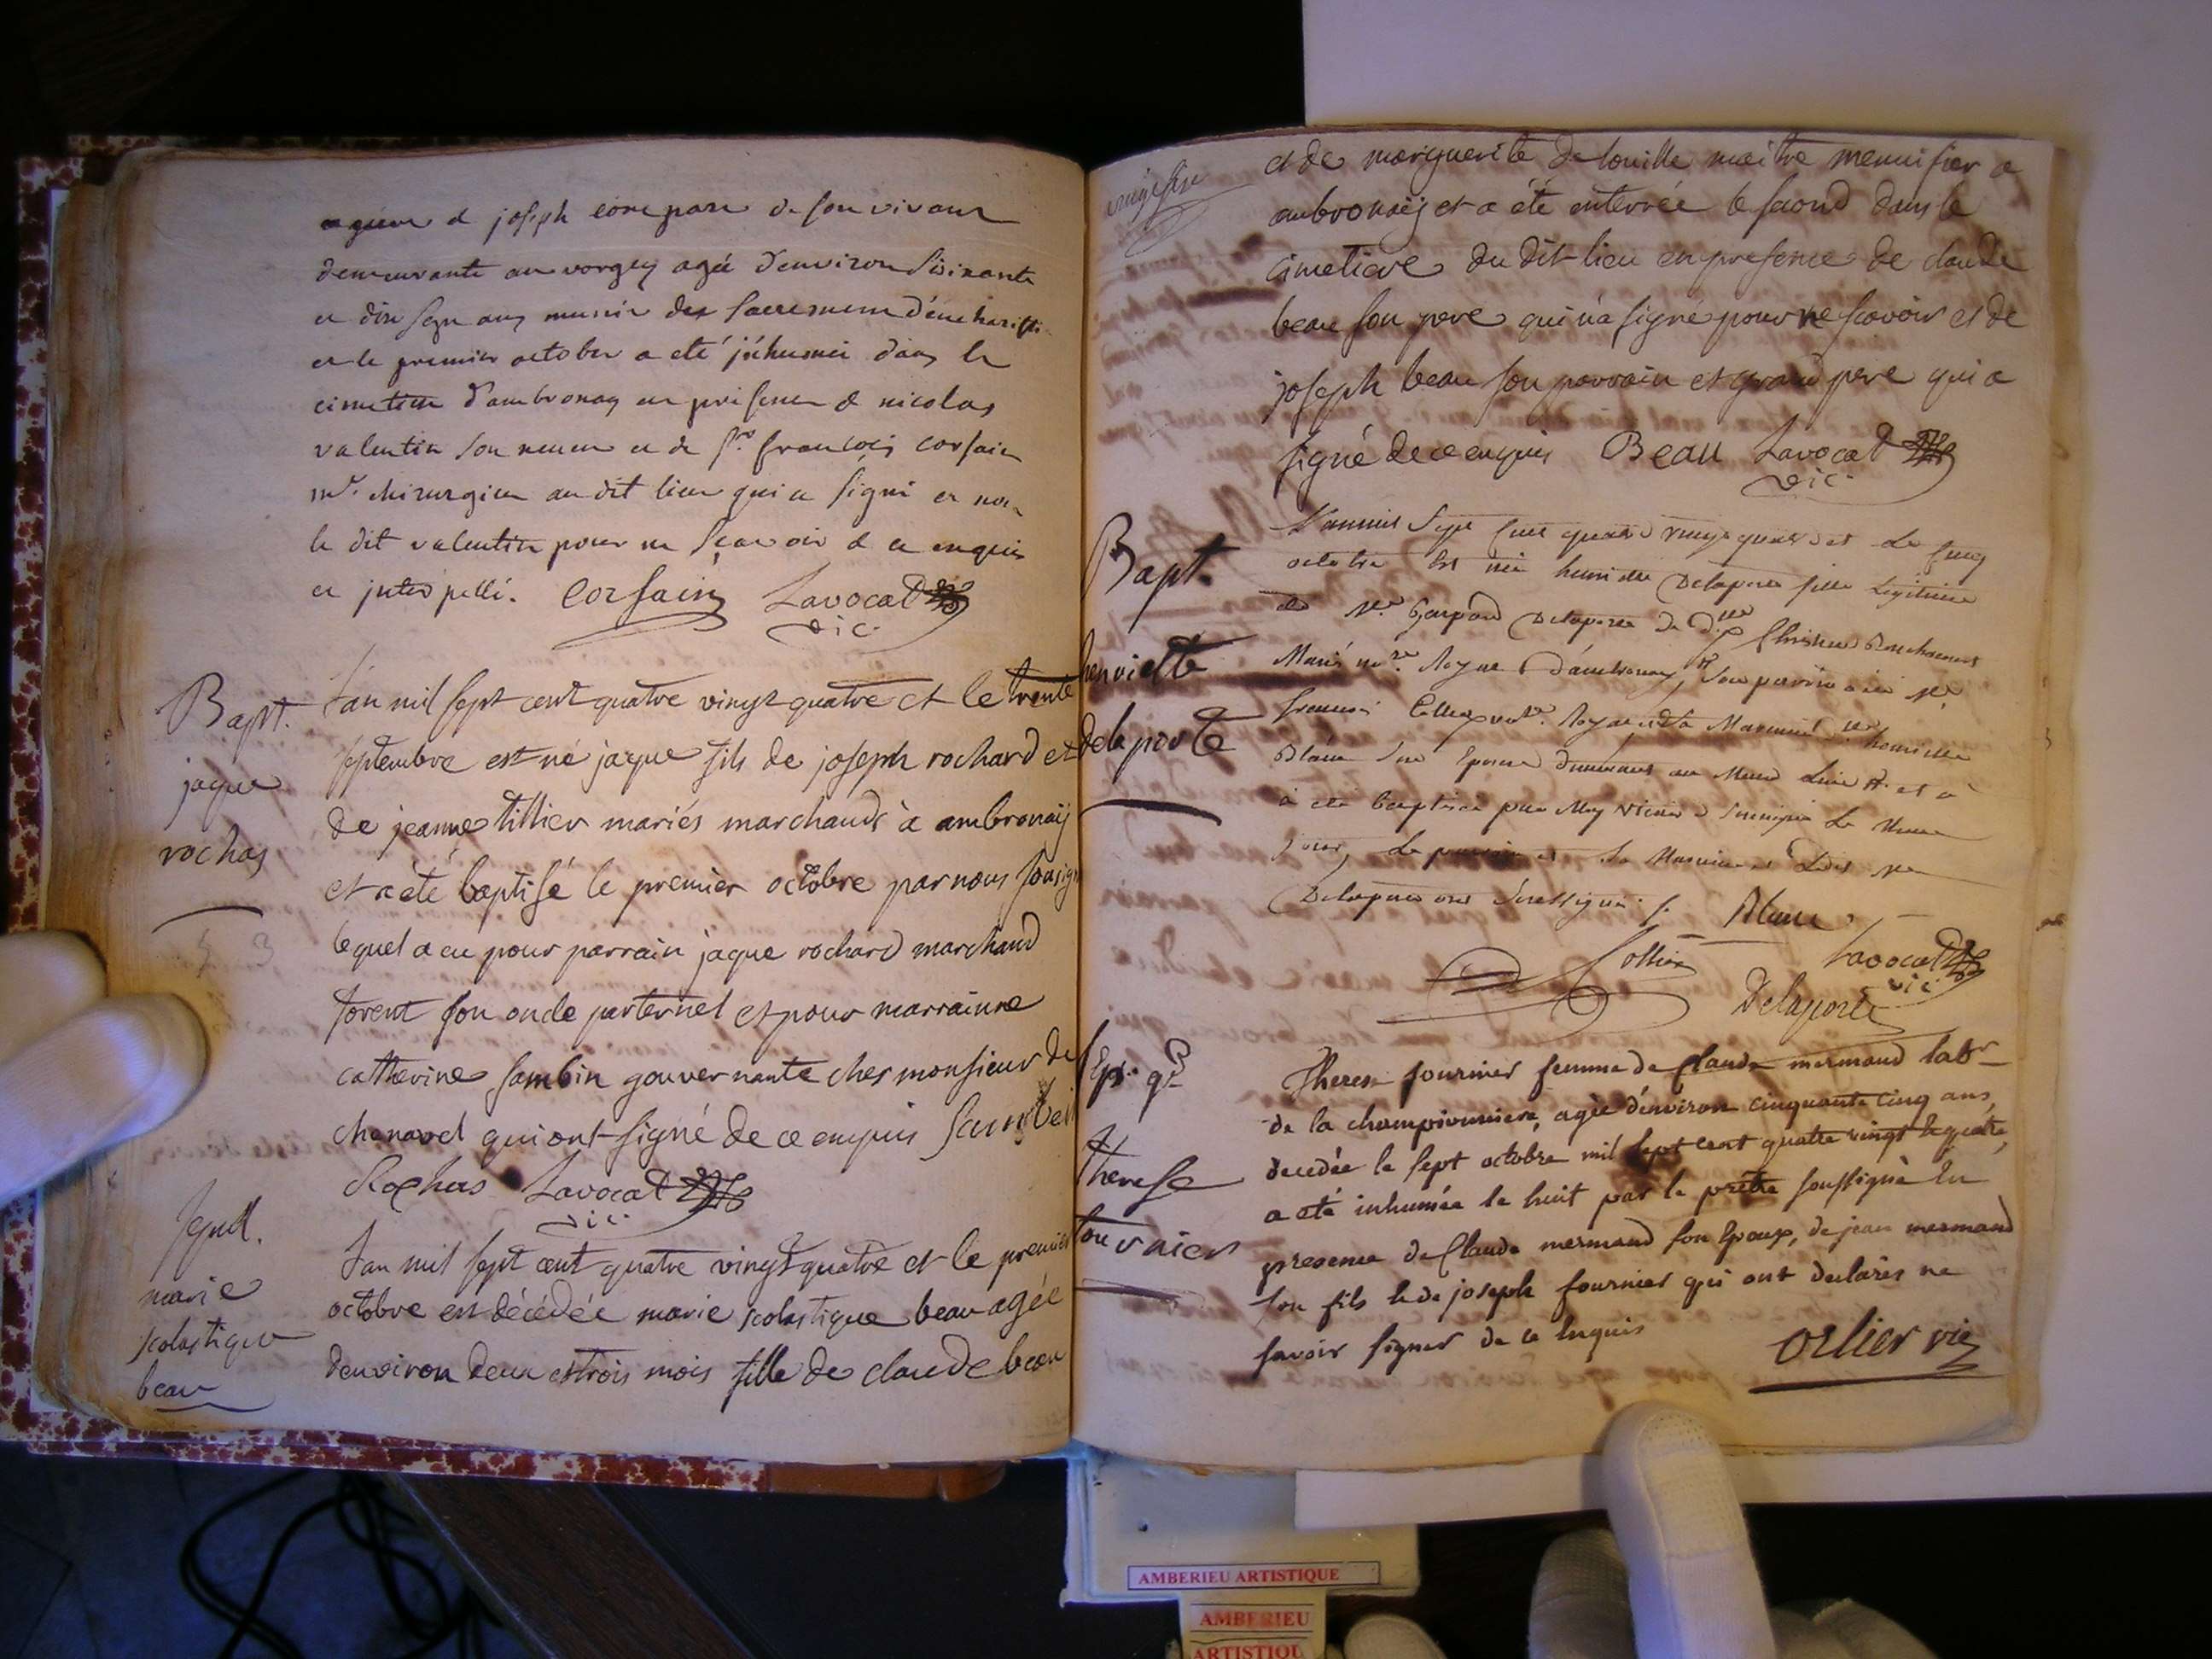 joseph compare de son vivant
demeurante au vorgey agée d'environ soixante
et dix sept ans munie des sacrement d'eucharisti
et le premier october a eté jnhumée dans le
cimetiere d'ambronay en presence de nicolas
valentin son neveu et de sr. françois corsain
mr. chirurgien au dit lieu qui a signé et non
le dit valentin pour ne sçavoir de ce enquis
et jnterpellé. Corsain Lavocat
vic.
Bapt.
jaque
rochas
L'an mil sept cent quatre vingt quatre et le trente
septembre est né jaque fils de joseph rochard et
de jeanne tillier mariés marchands à ambronaÿ
et a eté baptisé le premier octobre par nous sousig
lequel a eu pour parrain jaque rochard marchand
forent son oncle parternel et pour marrainne
catherine sambin gouvernante ches monsieur de
chenavel qui ont signé de ce enquis
Rochas Lavocat
vic.
sepult.
marie
scolastique
beau
L'an mil sept cent quatre vingt quatre et le premier
octobre est décédée marie scolastique beau agée
denviron deux et trois mois fille de claude beau
et de marguerite delouille maitre mennisier a
ambronaÿ et a été enterrée le second dans le
cimetiere du dit lieu en presence de claude
beau son pere qui n'a signé pour ne scavoir et de
joseph beau son parrain et grand pere qui a
signé de ce enquis Beau Lavocat
vic.
Bapt.
henriette
delaporte
L'an mil sept cent quatre vingt quatre et le cinq
octobre est née henriette Delaporte fille Legitime
de sr. Gaspard Delaporte
Mariés Royne d'ambronay, son parrin a été sr.
françois Royal et sa Marraine henriette
Blanc son Epouse au Meme Lieu et a
à eté baptisée par Moy Vicaire soussigné Le Meme
jour, Le parrin et La Marraine
Delaporte ont soussigné. Blanc
Collier Lavocat
vic.
Delaporte
Sep. gde
therese
fournier
Therese fournier femme de Claude mermand labr
de la championniere, agée d'environ cinquante cinq ans,
decedée le sept octobre mil sept cent quatre vingt & quatre,
a eté inhumée le huit par le prêtre soussigné En
presence de Claude mermand son Epoux, de jean mermand
son fils & de joseph fournier qui ont declarés ne
savoir signer de ce Enquis
orlier vic
AMBERIEU ARTISTIQUE
AMBERIEU
ARTISTIQU